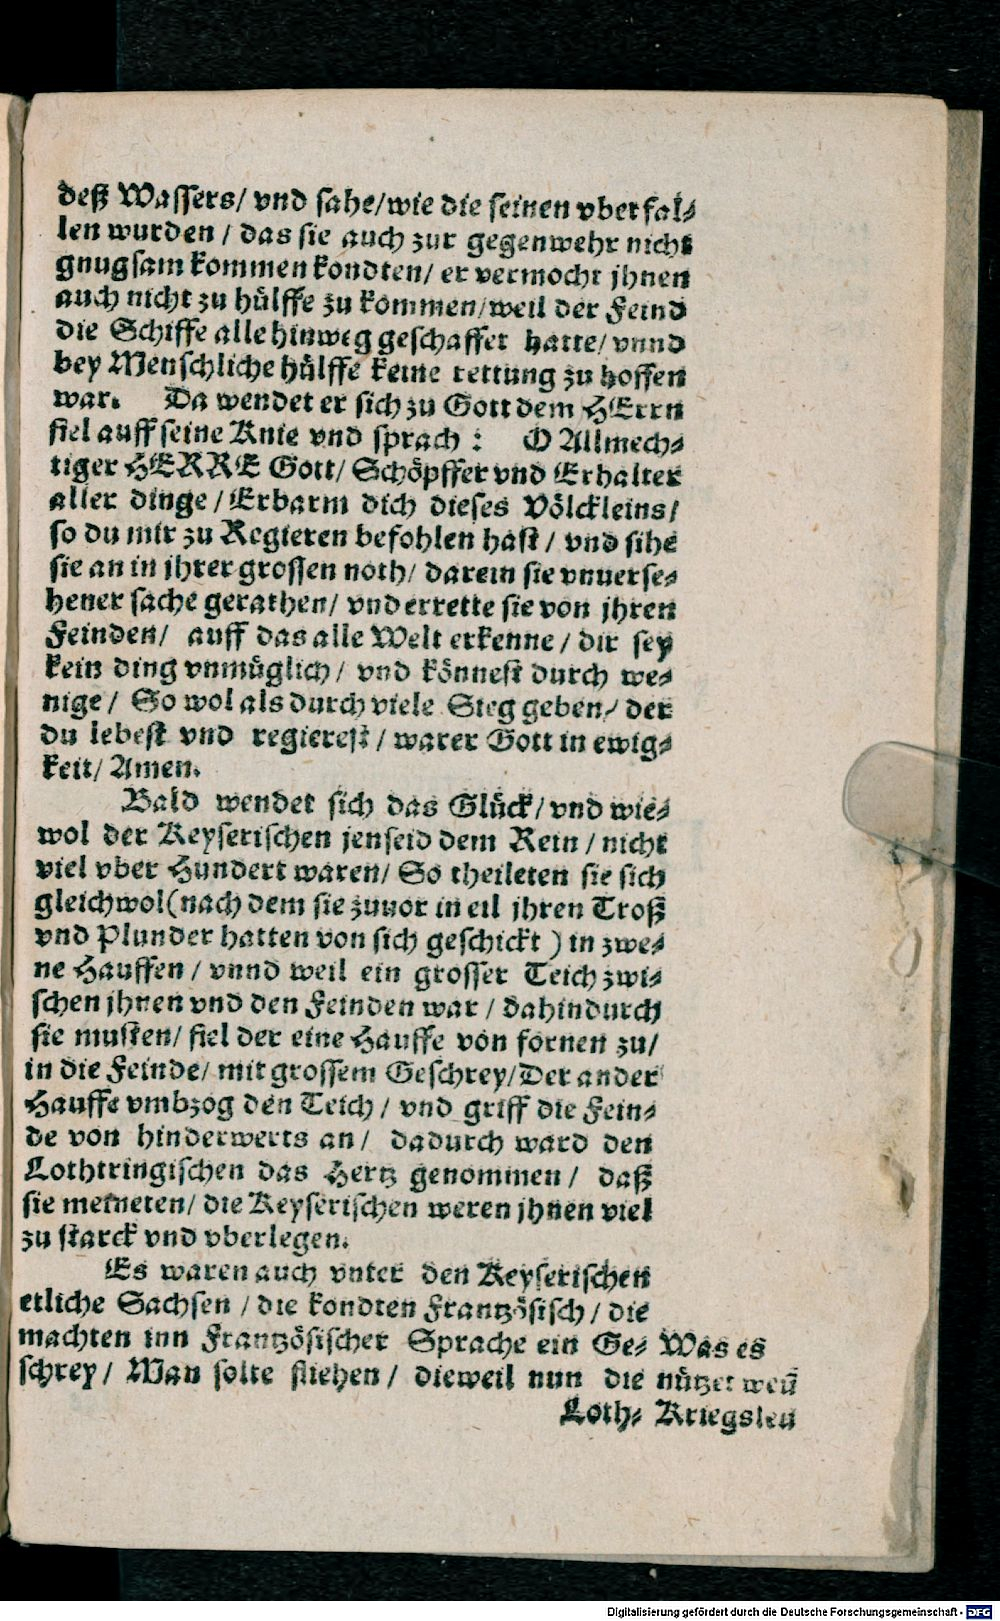 deß Wassers/ vnd sahe/wie die seinen vberfal-
len wurden / das sie auch zur gegenwehr nicht
gnugsam kommen kondten/ er vermocht jhnen
auch nicht zu hülffe zu kommen/weil der Feind
die Schiffe alle hinweg geschaffet hatte/ vnnd
bey Menschliche hülffe keine rettung zu hoffen
war. Da wendet er sich zu Gott dem HErrn
fiel auff seine Knie vnd sprach : O Allmech-
tiger HERRE Gott/ Schöpffer vnd Erhalter
aller dinge / Erbarm dich dieses Völckleins/
so du mir zu Regieren befohlen hast / vnd sihe
sie an in jhrer grossen noth/ darein sie vnuerse-
hener sache gerathen/ vnd errette sie von jhren
Feinden/ auff das alle Welt erkenne / dir sey
kein ding vnmüglich / vnd könnest durch we-
nige / So wol als durch viele Sieg geben/ der
du lebest vnd regierest / warer Gott in ewig-
keit/ Amen.
Bald wendet sich das Glück/ vnd wie-
wol der Keyserischen jenseid dem Rein / nicht
viel vber Hundert waren/ So theileten sie sich
gleichwol (nach dem sie zuuor in eil jhren Troß
vnd Plunder hatten von sich geschickt ) in zwe-
ne Hauffen / vnnd weil ein grosser Teich zwi-
schen jhnen vnd den Feinden war / dahindurch
sie musten/ fiel der eine Hauffe von fornen zu/
in die Feinde/ mit grossem Geschrey/Der ander
Hauffe vmbzog den Teich / vnd griff die Fein-
de von hinderwerts an / dadurch ward den
Lothtringischen das Hertz genommen / daß
sie meineten/ die Keyserischen weren jhnen viel
zu starck vnd vberlegen.
Es waren auch vnter den Keyserischen
etliche Sachsen / die kondten Frantzösisch / die
machten inn Frantzösischer Sprache ein Ge- Was es
schrey / Man solte fliehen / dieweil nun die nützet weñ
Loth- Kriegsleu
Digitalisierung gefördert durch die Deutsche Forschungsgemeinschaft - DFG